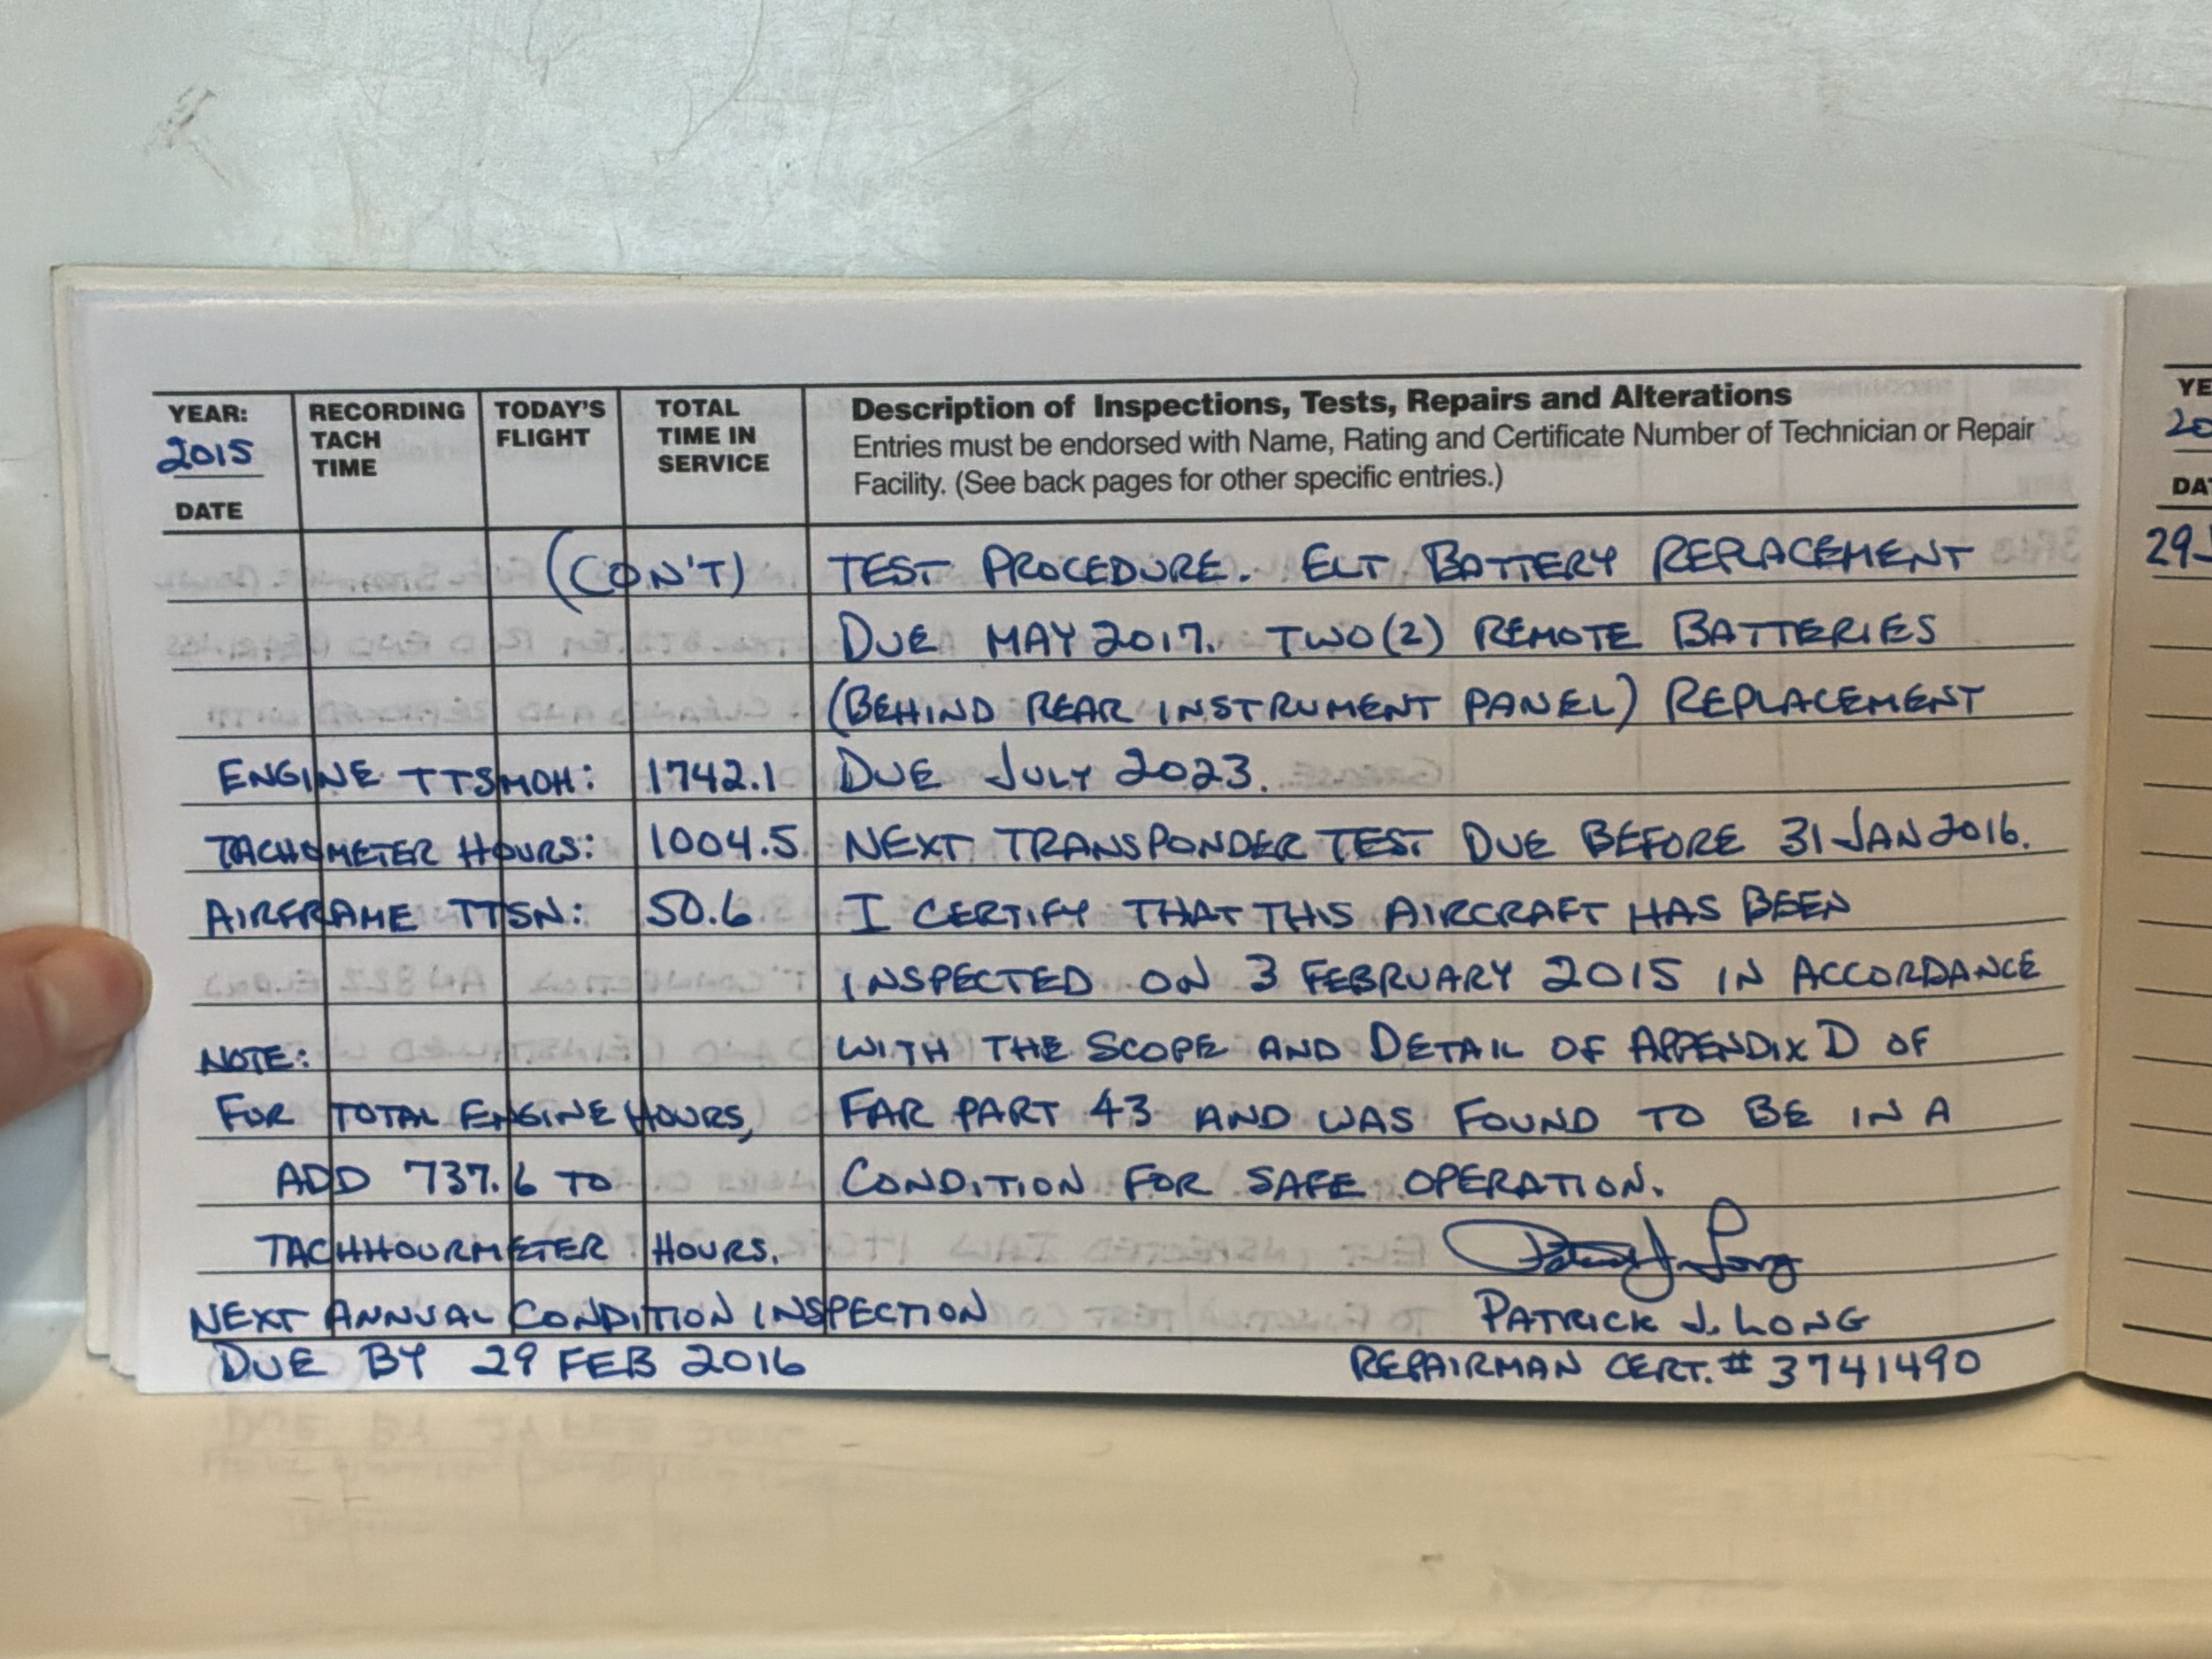 YEAR: 2015
DATE
RECORDING TACH TIME
TODAY'S FLIGHT
TOTAL TIME IN SERVICE
Description of Inspections, Tests, Repairs and Alterations
Entries must be endorsed with Name, Rating and Certificate Number of Technician or Repair
Facility. (See back pages for other specific entries.)
(CON'T) TEST PROCEDURE. ELT BATTERY REPLACEMENT
DUE MAY 2017. TWO(2) REMOTE BATTERIES
(BEHIND REAR INSTRUMENT PANEL) REPLACEMENT
ENGINE TTSMOH: 1742.1 DUE JULY 2023.
TACHOMETER HOURS: 1004.5 NEXT TRANSPONDER TEST DUE BEFORE 31 JAN 2016.
AIRFRAME TTSN: 50.6 I CERTIFY THAT THIS AIRCRAFT HAS BEEN
INSPECTED ON 3 FEBRUARY 2015 IN ACCORDANCE
NOTE: WITH THE SCOPE AND DETAIL OF APPENDIX D OF
FOR TOTAL ENGINE HOURS, FAR PART 43 AND WAS FOUND TO BE IN A
ADD 737.6 TO CONDITION FOR SAFE OPERATION.
TACHHOURMETER HOURS. Patrick J. Long
NEXT ANNUAL CONDITION INSPECTION PATRICK J. LONG
DUE BY 29 FEB 2016 REPAIRMAN CERT.# 3741490